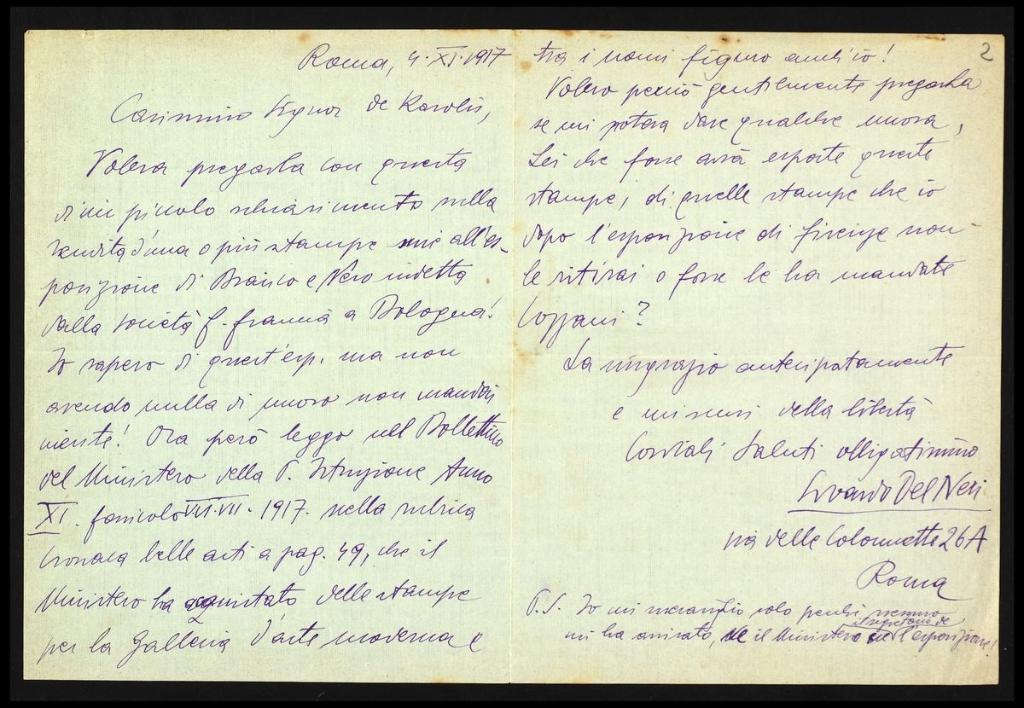 Roma, 4. XI. 1917
Carissimo Signor de Karolis,
Volevo pregarla con questa
di un piccolo schiarimento sulla
vendita d'una o più stampe mie all'es-
posizione di Bianco e Nero indetta
dalla società f. francia a Bologna!
Io sapevo di quest'esp. ma non
avendo nulla di nuovo non mandai
niente! Ora però leggo nel Bollettino
del Ministero della P. Istruzione Anno
XI. fascicolo VII. 1917. nella rubrica
Cronaca belle arti a pag. 49, che il
Ministero ha acquistato delle stampe
per la Galleria d'arte moderna e
2
tra i nomi figuro anch'io!
Volevo perciò gentilmente pregarla
se mi poteva dare qualche nuova,
Lei che forse avrà esposte queste
stampe, di quelle stampe che io
dopo l'esposizione di firenze non
le ritirai o forse le ha mandate
Cozzani?
La ringrazio anticipatamente
e mi scusi della libertà
Cordiali Saluti obbligatissimo
Edoardo Del Neri
via delle Colonnette 26A
Roma
P.S. Io mi meraviglio solo perchè nessuno
il segretario de
mi ha avvisato, nè il Ministero nè l'esposizione!